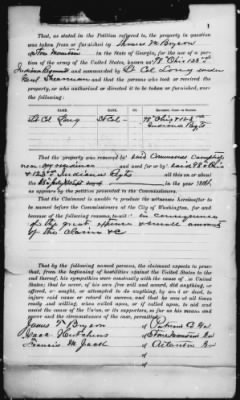 That, as stated in the Petition referred to, the property in question
was taken from or furnished by James W. Bryson
of Stone Mountain in the State of Georgia, for the use of a por-
tion of the army of the United States, known as 98" Ohio 123rd
Indiana Regiments and commanded by Lt Col Long under
Genl Sherman and that the persons who took or received the
property, or who authorized or directed it to be taken or furnished, were
the following:
Lt Col Long Lt Col 98" Ohio & 123rd
Indiana Regts
That the property was removed to said Commands Camp
my residence and used for or by said 98" Ohio
& 123rd Indiana Regts all this on or about
the day in the year 1864,
as appears by the petition presented to the Commissioners.
That the Claimant is unable to produce the witnesses hereinafter to
be named before the Commissioners at the City of Washington, for and
because of the following reasons, to wit: in consequence
of the great expense & small amount
of the claim &c
That by the following named persons, the claimant expects to prove
that, from the beginning of hostilities against the United States to the
end thereof, his sympathies were constantly with the cause of the United
States; that he never, of his own free will and accord, did anything, or
offered, or sought, or attempted to do anything, by word or deed, to
injure said cause or retard its success, and that he was at all times
ready and willing, when called upon, or if called upon, to aid and
assist the cause of the Union, or its supporters, so far as his means and
power and the circumstances of the case, permitted:
James T. Bryson of
Hutchins of Stone Mountain Ga
Francis M. Jack of Atlanta Ga
of
of